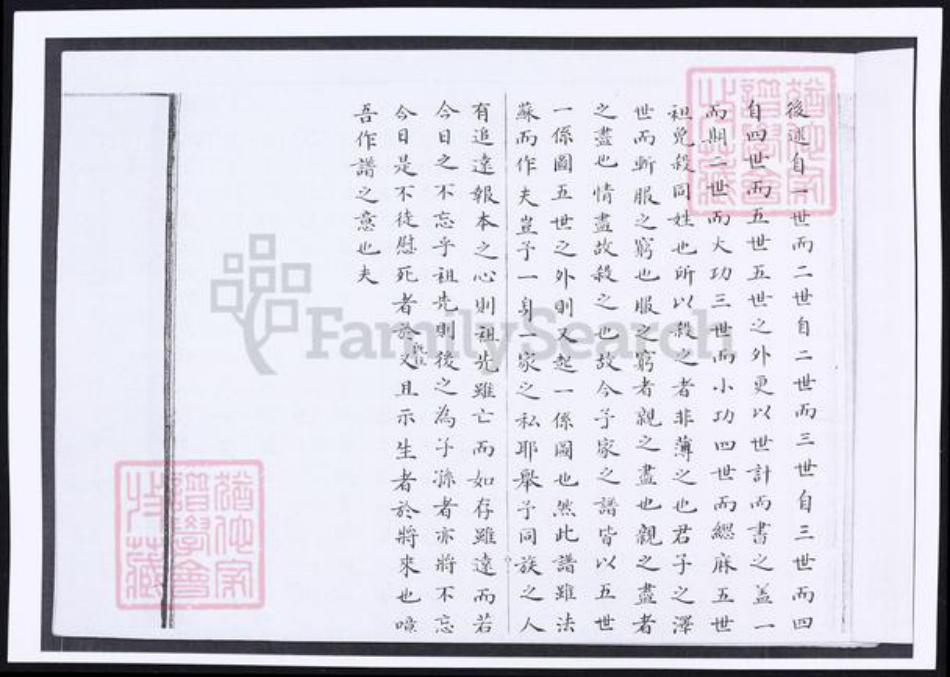 後巡自一世而二世自二世而三世自三世而四
自四世而五世五世之外更以世計而書之盖一
而期二世而大功三世而小功四世而緦麻五世
祖免殺同姓也所以殺之者非薄之也君子之澤
世而斬服之窮也服之窮者親之盡也親之盡者
之盡也情盡故殺之也故今予家之譜皆以五世
一係圖五世之外則又起一係圖也然此譜雖法
蘇而作夫豈予一身一家之私耶舉予同族之人
有追遠報本之心則祖先雖亡而如存雖遠而若
今日之不忘乎祖先則後之為子孫者亦將不忘
今日是不徒慰死者於又且示生者於將來也噫
吾作譜之意也夫
FamilySearch